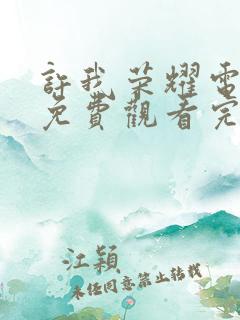 許我荣耀電
免費觀看完
江穎
未经同意禁止转载